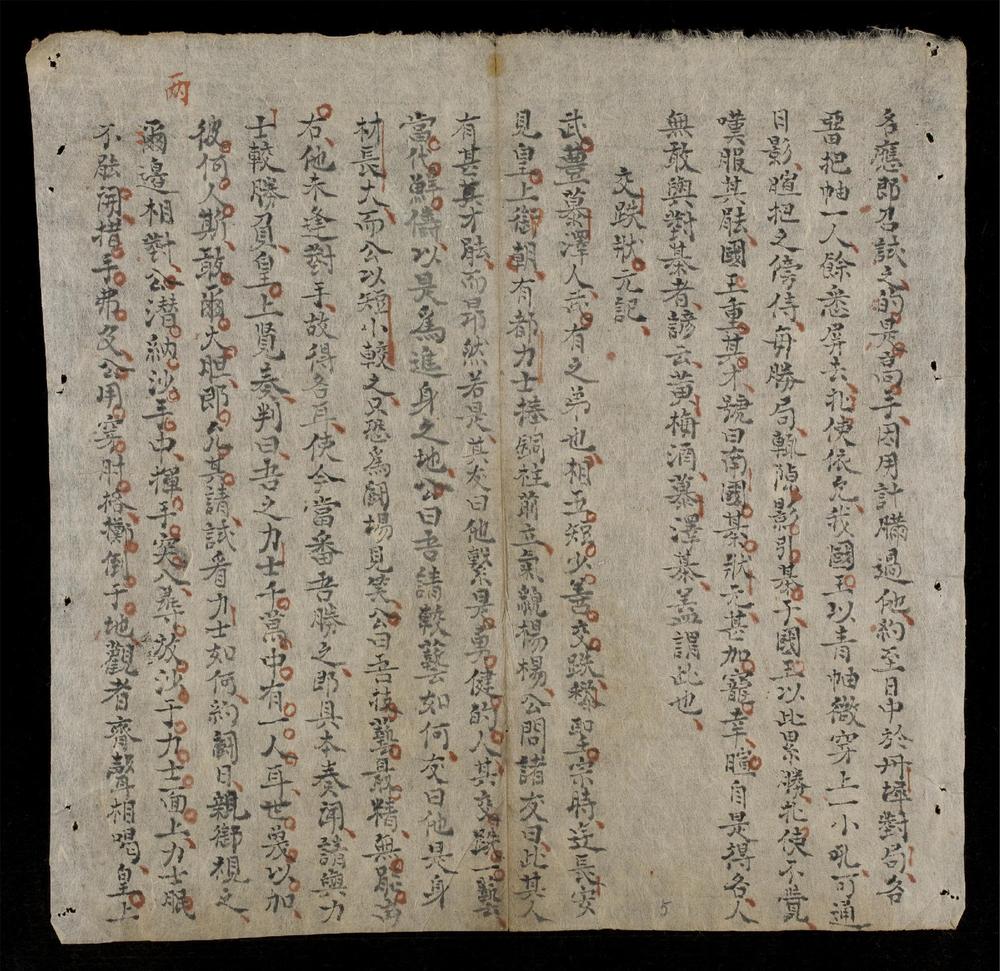 名應郎召試之的是高手因用計購過他約至日中於丹墀對局各
畱把岫一人餘悉屏去北使依允我國王以青岫微穿上一小吼可通
日影暄把之傍侍每勝局輒隙影引棋子國王以此累勝北使不覺
嘆服其能國王重其才號曰南國棋狀元甚加寵幸暄自是得名人
無敢與對棊者諺云黃梅酒慕澤棊盖謂此也
交跌狀元記
武豊慕澤人武有之弟也相五短少善交跌類聖宗時逰長安
見皇上御朝有都力士捧銅柱前立氣貌楊楊公問諸友曰此其人
有甚異才能而昂然若是其友曰他繫是勇健的人其交跌一藝
當代鮮儔以是爲進身之地公曰吾請較藝如何友曰他是身
材長大而公以短小較之只恐爲闘場見笑公曰吾技藝最精無能出
右他未逢對手故得名耳使今當番吾勝之郎具本奏聞請與力
士較勝負皇上覽奏判曰吾之力士千萬中有一人耳世蔑以加
彼何人斯敢爾大胆郎允其請試看力士如何約闘日親御視之
爾邊相對公潛納沙手中揮手突入群放沙于力士面上力士眠
不能開措手弗及公用穿肘格擲倒于地觀者齊聲相喝皇上
两
5